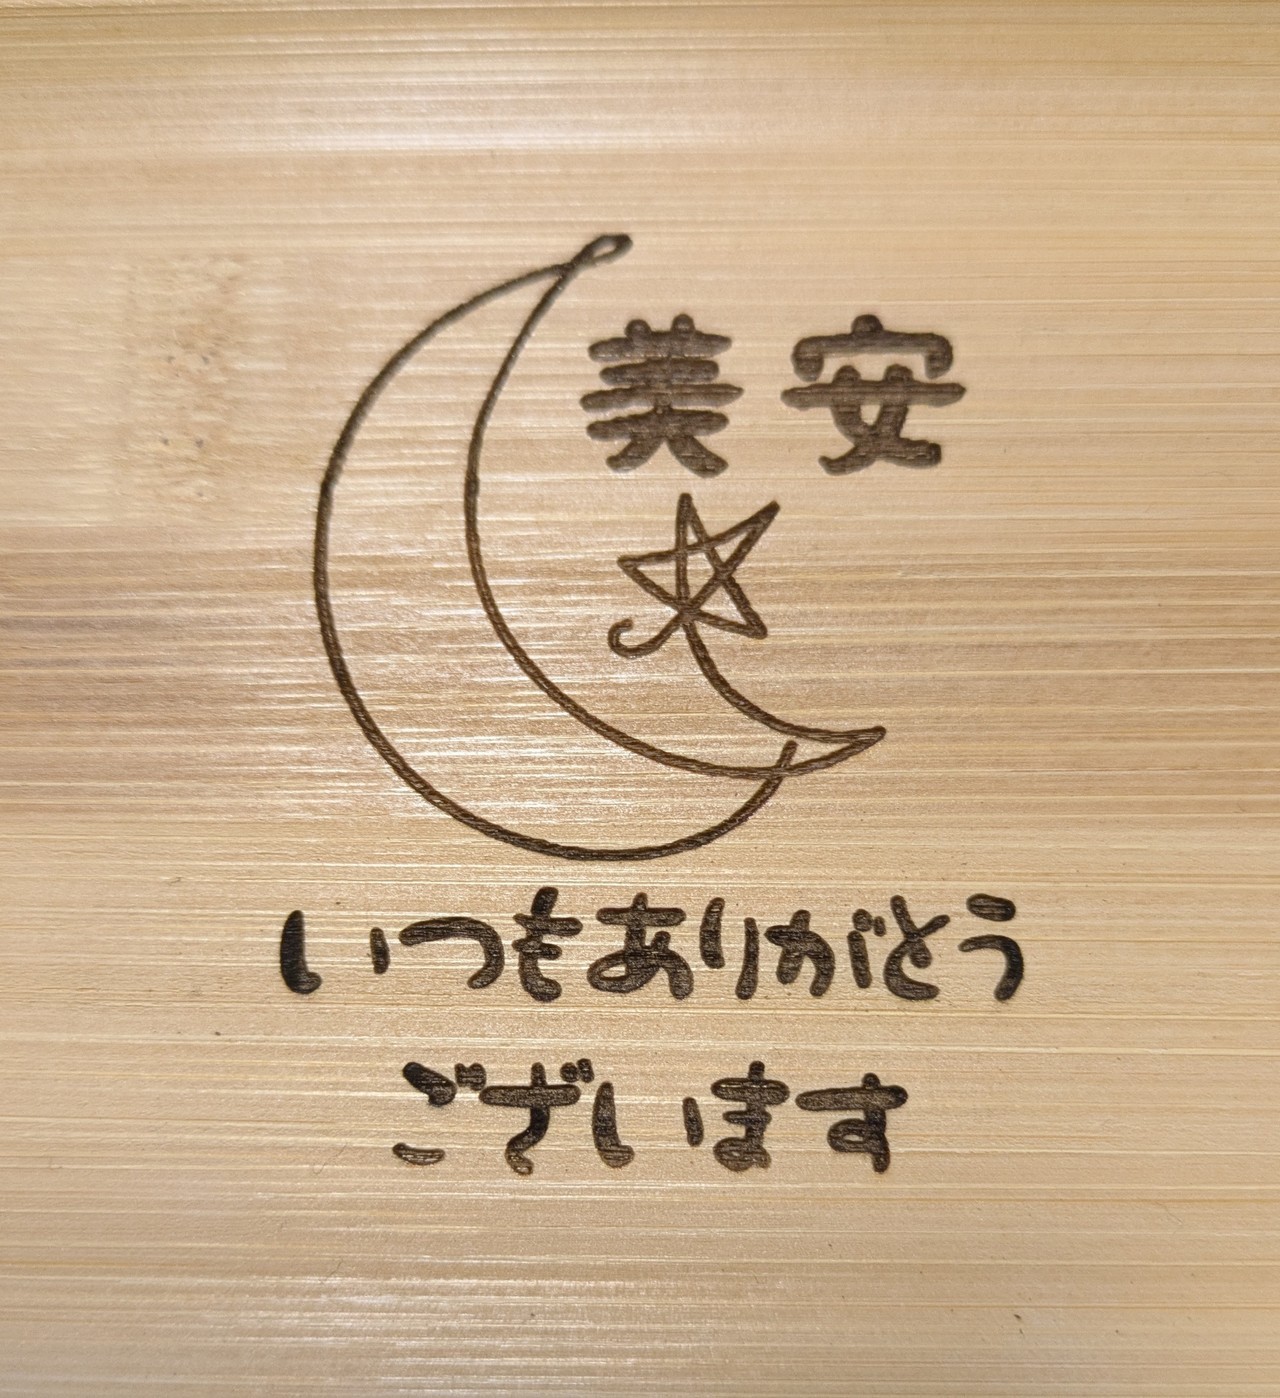 美安
いつもありがとう
ございます